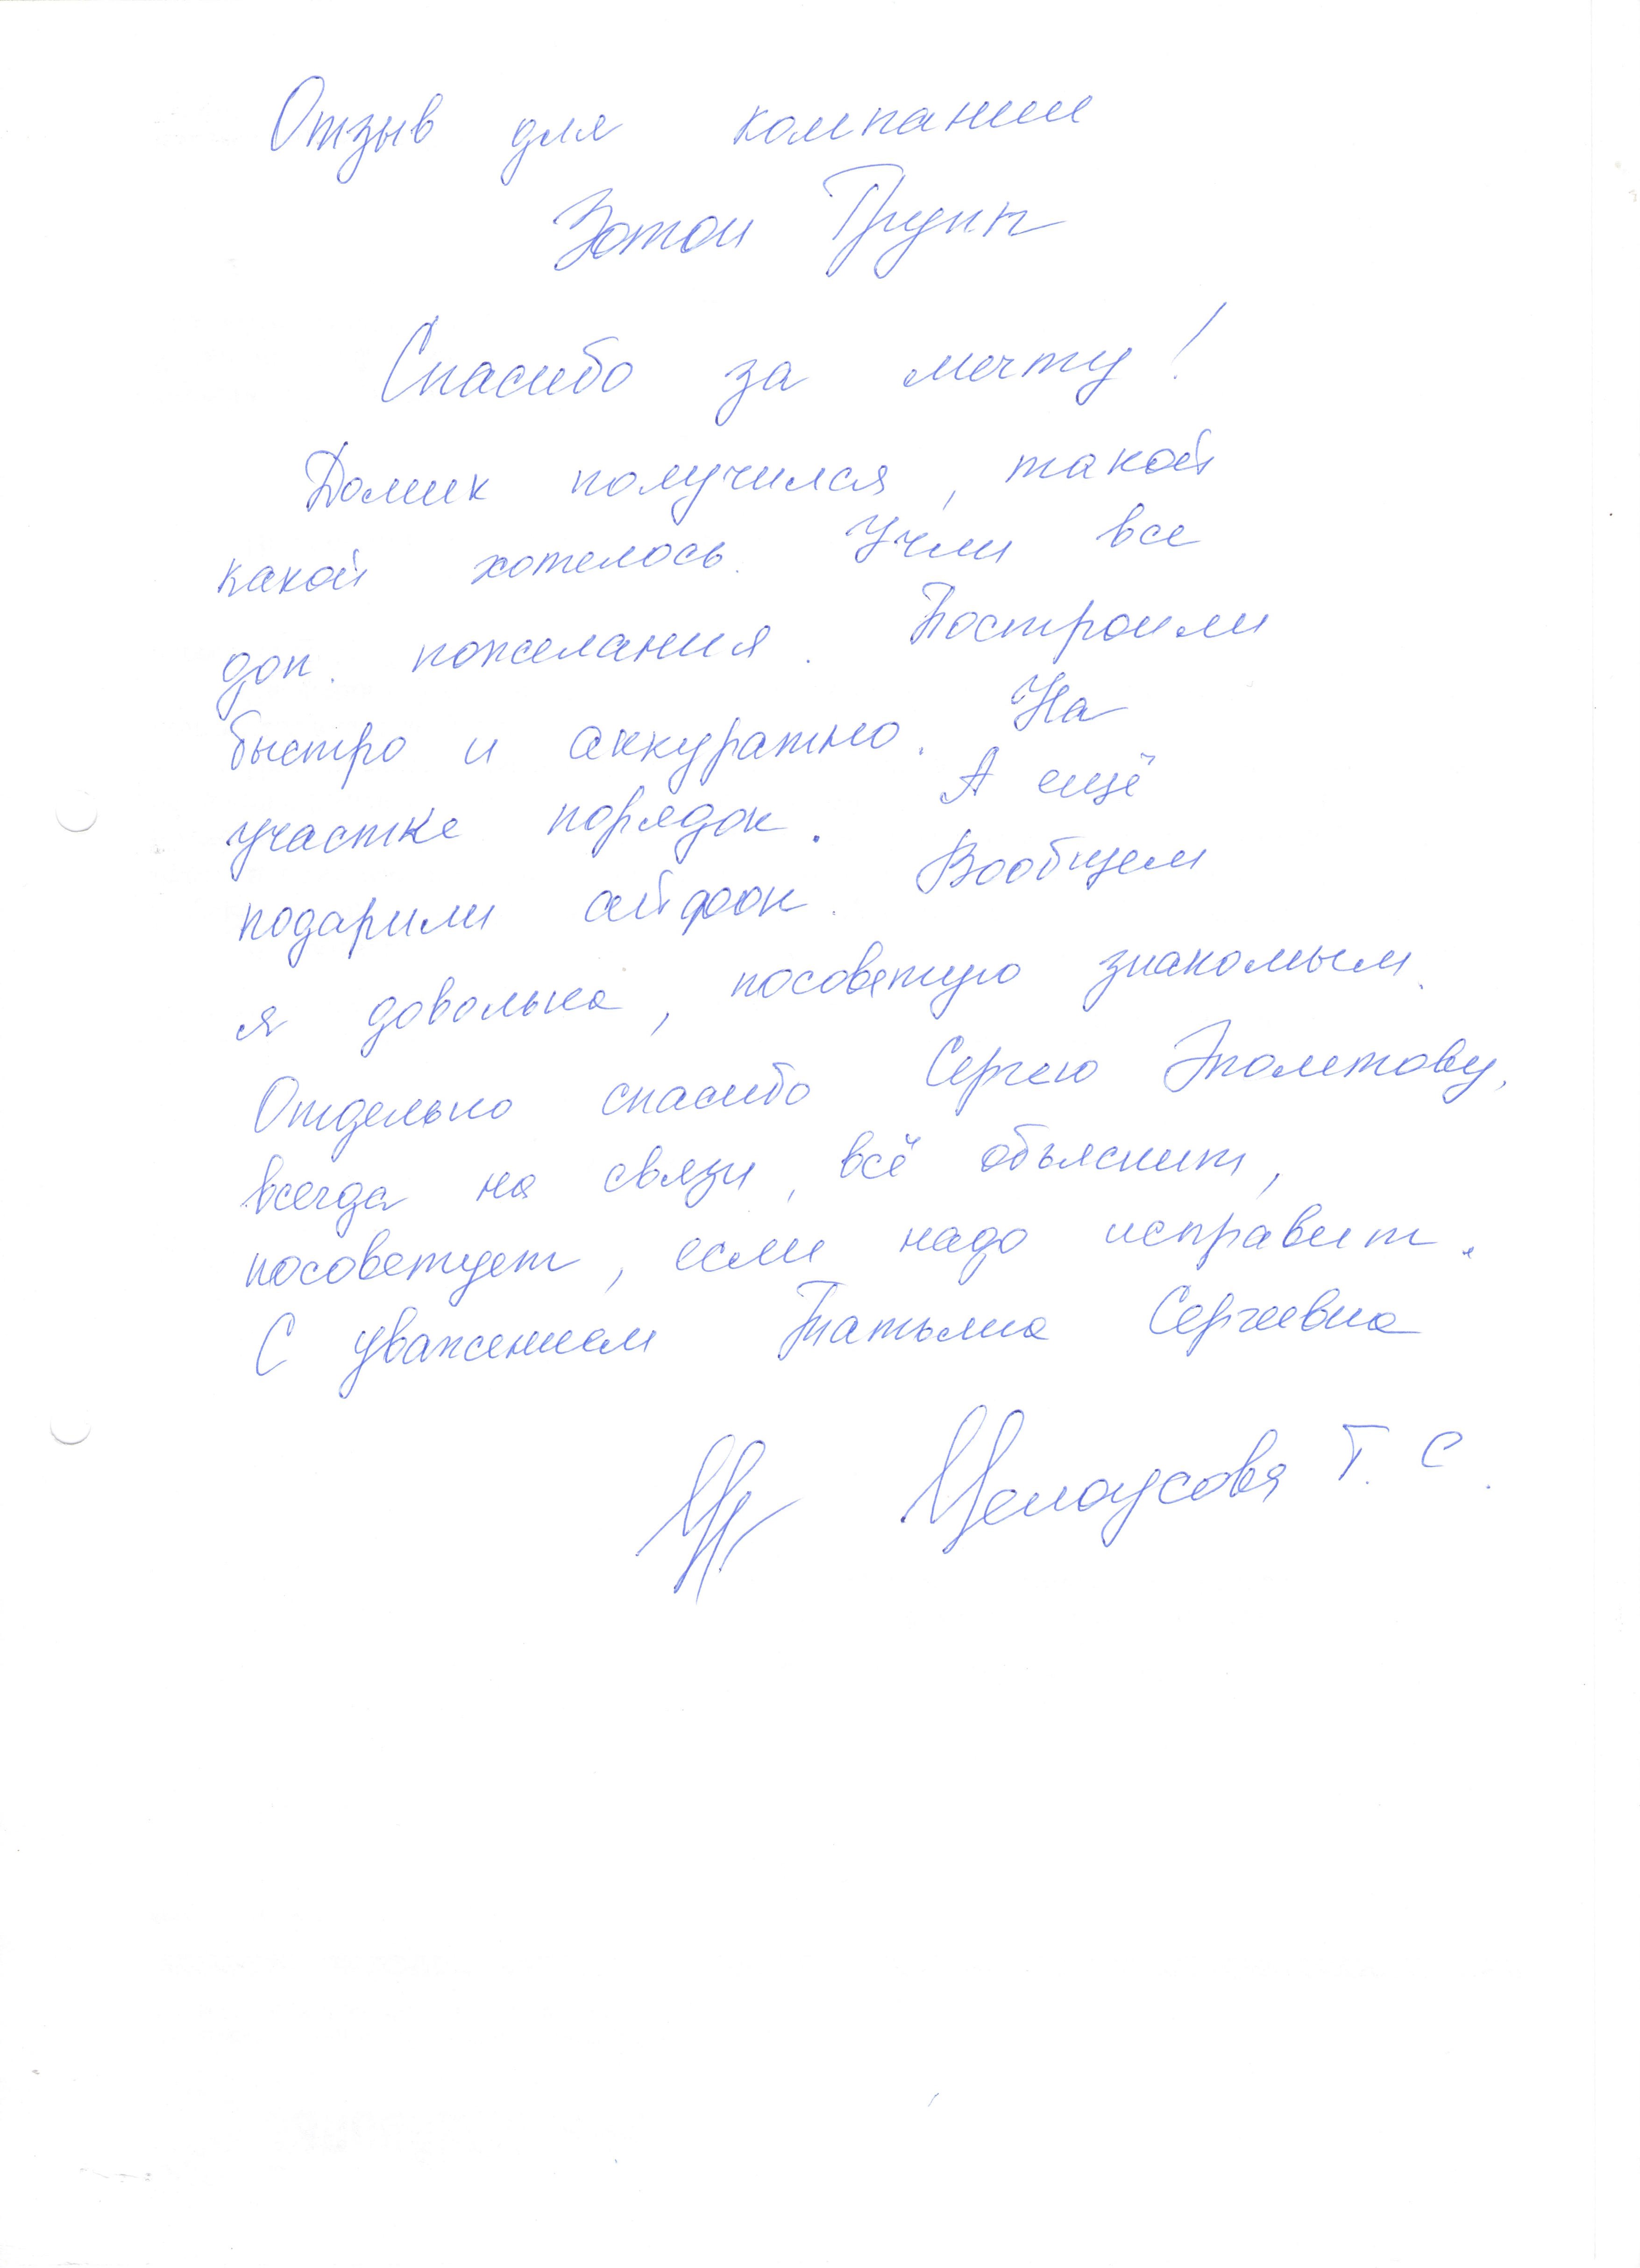 Отзыв для компании
Зотои Групп
Спасибо за мечту!
Домик получился, такой
какой хотелось. Учли все
доп. пожелания. Построили
быстро и аккуратно. На
участке порядок. А ещё
подарили айфон. Вообщем
я довольна, посоветую знакомым.
Отдельно спасибо Сергею Эполетову,
всегда на связи, всё объяснит,
посоветует, если надо исправит.
С уважением Татьяна Сергеевна
Т. С.